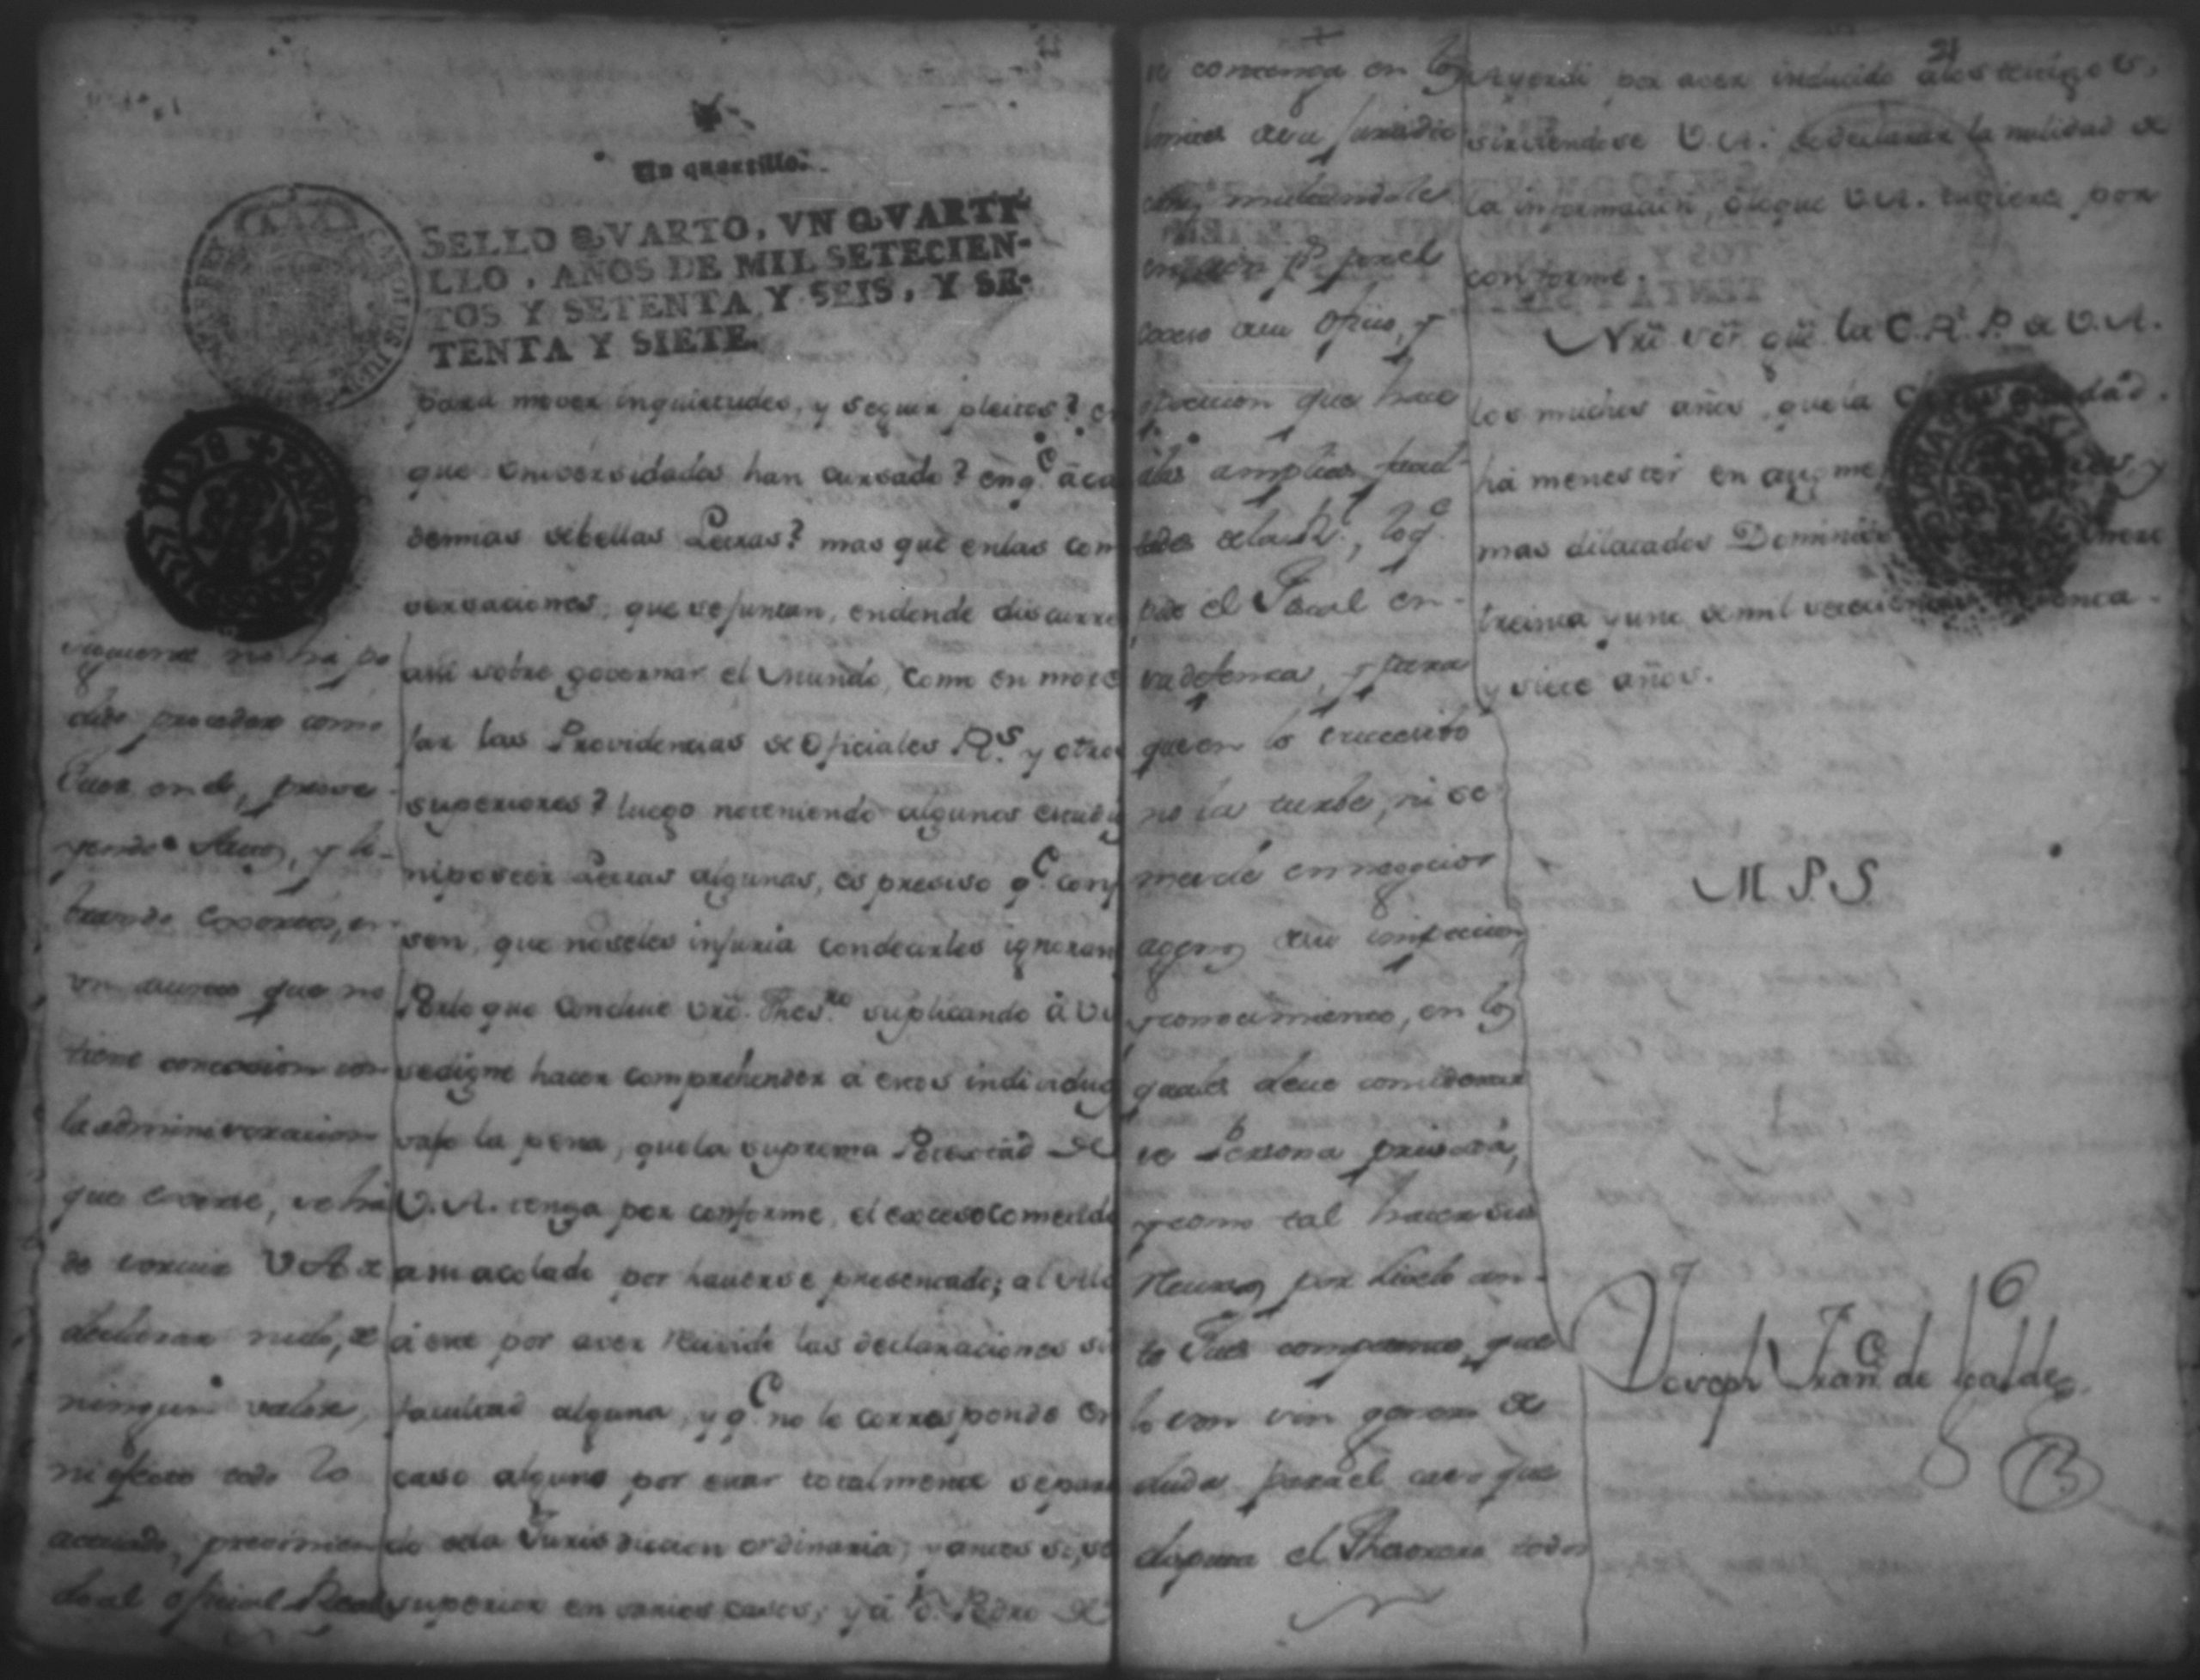 Un quartillo.
SELLO QVARTO, VN QVARTI-
LLO, AÑOS DE MIL SETECIEN-
TOS Y SETENTA Y SEIS, Y SE-
TENTA Y SIETE.
para mover inquietudes, y seguir pleitos?
que Universidades han cursado? en q.e aca
demias de bellas Letras? mas que en las con
versaciones, que se juntan, en donde discurre
asi sobre governar el Mundo, como en mote
jar las Providencias de Oficiales R.s y otros
superiores? luego no teniendo algunos estudi
ni poseer Letras algunas, es preciso q.e
sen, que no se les injuria con decirles ignoran
Por lo que concluie vro. Thes.ro suplicando à V.
se digne hacer comprehender á estos individuo
vajo la pena, que la suprema Potestad de
V.A. tenga por conforme, el exceso cometido
amacolado por haverse presentado; al
á este por aver recivido las declaraciones si
facultad alguna, y q.e no le corresponde en
caso alguno por estar totalmente separa
do de la Jurisdiccion ordinaria, y antes si, se
superior en varios casos; y á D. Pedro de
siguiente no ha po
dido proceder como
Juez en el, prove-
yendo Autos, y li-
brando Exortos, en
un asunto que no
tiene conexion con
la administracion
que exerce, se há
de servir V.A. de
declarar nulo, de
ningun valor,
ni efecto todo lo
actuado, previnien
do al oficial Real
se contenga en los
limites de su jurisdic
cion, multandole
por el
exceso de su oficio, y
que hace
de las amplias facul-
tades de la R.l, lo q.e
pide el Fiscal en-
su defensa, y para
que en lo succesivo
no la turbe, ni se
mescle en negocios
agenos de su inspeccion
y conocimiento, en los
quales deve considerar
se Persona privada,
y como tal hacer sus
recursos por escrito an-
te Juez competente, que
lo son sin genero de
duda para el caso que
disputa el Thesorero todos
21
Argendi por aver inducido a los testigos,
sirviendose V.A. de declarar la nulidad de
la informacion, o lo que V.A. tuviere por
conforme.
Nro. Sor. gue. la C.R.P. de V.A.
los muchos años, que la
ha menester en augme
mas dilatados Dominios
treinta y uno de mil setecientos setenta
y siete años.
M.P.S.
Joseph Fran.co de